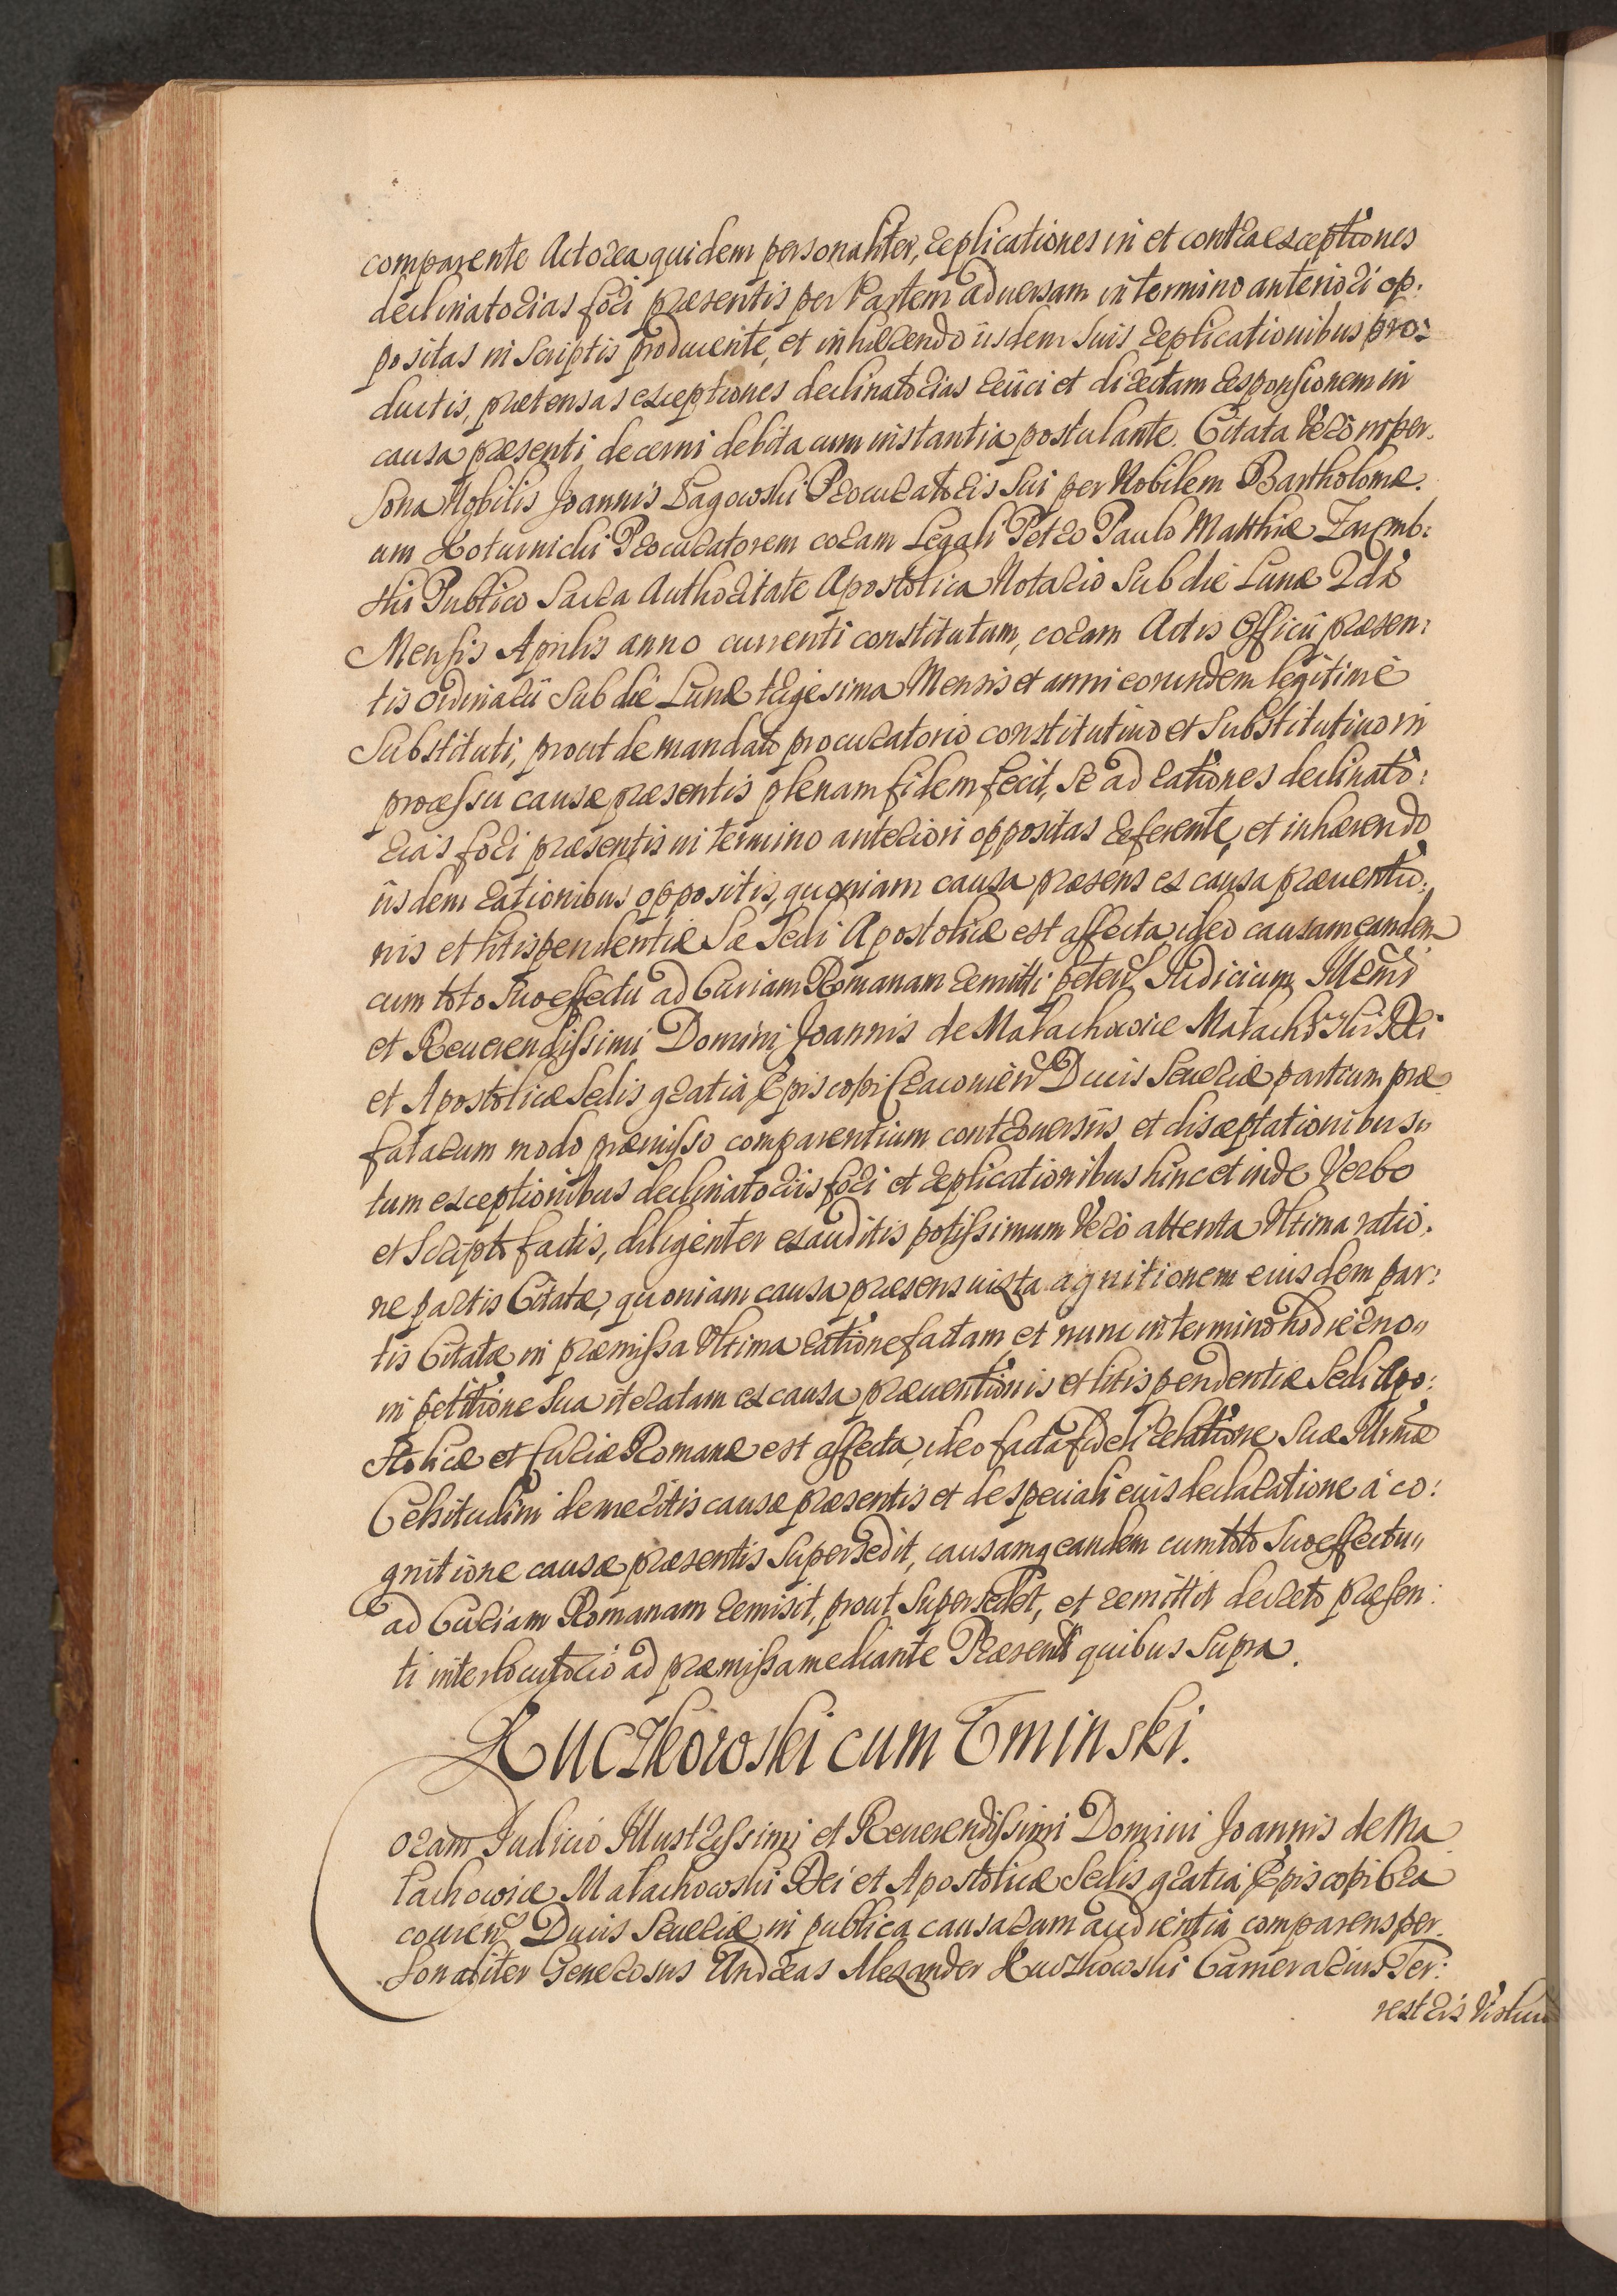 comparente Actorea quidem personaliter, replicationes in et contra exceptiones
declinatorias fori præsentis per Partem aduersam in termino anteriori op:
positas in Scriptis producente, et inhærendo iisdem suis replicationibus pro:
ductis, prætensas exceptiones declinatorias reiici et directam responsionem in
causa præsenti decerni debita cum instantia postulante. Citata Verò in per:
sona Nobilis Joannis Lagowski Procuratoris sui per Nobilem Bartholomæ:
um Koturnicki Procuratorem coram Legali Petro Paulo Matthiæ Zaremb:
ski Publico Sacra Authoritate Apostolica Notario Sub die Lunæ 2da
Mensis Aprilis anno currenti constitutum, coram Actis Officii præsen:
tis ordinarii Sub die Lunæ trigesima Mensis et anni eorundem legitimè
Substituti, prout de mandato procuratorio constitutiuo et Substitutiuo in
processu causæ præsentis plenam fidem fecit, se ad rationes declinato:
rias fori præsentis in termino anteriori oppositas referente, et inhærendo
iisdem rationibus oppositis, quoniam causa præsens ex causa præuentio:
nis et litispendentiæ Sæ Sedi Apostolicæ est affecta, ideo causam eandem
cum toto suo effectu ad Curiam Romanam remitti peten. Judicium Illmi
et Reuerendissimi Domini Joannis de Malachowice Malachowski Dei
et Apostolicæ Sedis gratia Episcopi Cracouien Ducis Seueriæ partium præ
fatarum modo præmisso comparentium controuersiis et disceptationibus
tum exceptionibus declinatoriis fori et replicationibus hinc et inde Verbo
et Scripto factis, diligenter exauditis potissimum Verò attenta Vltima ratio:
ne partis Citatæ, quoniam causa præsens iuxta agnitionem eiusdem par:
tis Citatæ in præmissa Vltima ratione factam, et nunc in termino hodierno
in petitione sua iteratam ex causa præuentionis et litispendentiæ Sedi Apo:
stolicæ et Curiæ Romanæ est affecta, ideo facta fideli relatione Suæ Illrmæ
Celsitudini de meritis causæ præsentis et de speciali eius declaratione à co:
gnitione causæ præsentis Supersedit, causamq eandem cum toto Suo effectu
ad Curiam Romanam remisit, prout Supersedet, et remittit decreto præsen:
ti interlocutorio ad præmissa mediante Præsenti quibus Supra.
Ruczkowski cum Cminski.
Coram Judicio Illustrissimi et Reuerendissimi Domini Joannis de Ma
lachowice Malachowski Dei et Apostolicæ Sedis gratia Episcopi Cra
couien Ducis Seueriæ in publica causarum audientia comparens per
sonaliter Generosus Andreas Alexander Ruczkowski Camerarius Ter:
restris